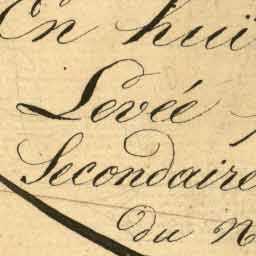 En huit
Levée
Secondaire
du N